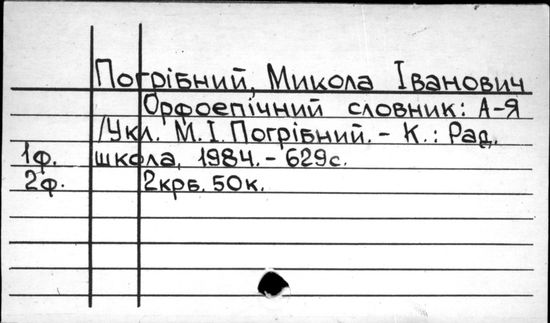 Погрібний, Микола Іванович
Орфоепічний словник: А-Я
/Укл. М.І.Погрібний. - К.: Рад.
1ф. школа, 1984. - 629с.
2ф. 2крб. 50к.